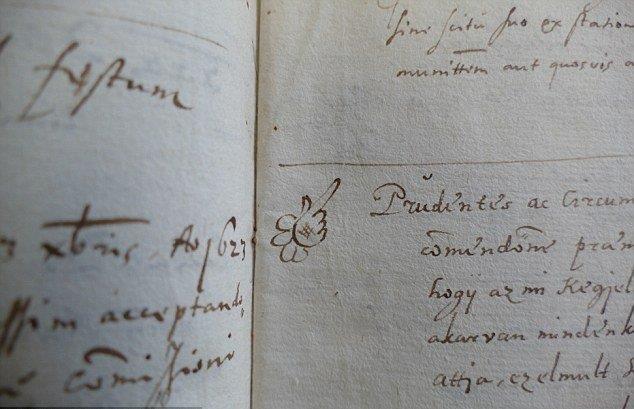 festum
xbris, Ao 1623
acceptand
comissioni
sine scitu suo ex station
munitte͞m aut quosvis a
Prudentes ac Circum
com̄endōne præm
hogÿ az mi Kegjel
akarvan mindenk
attja, ezelmult